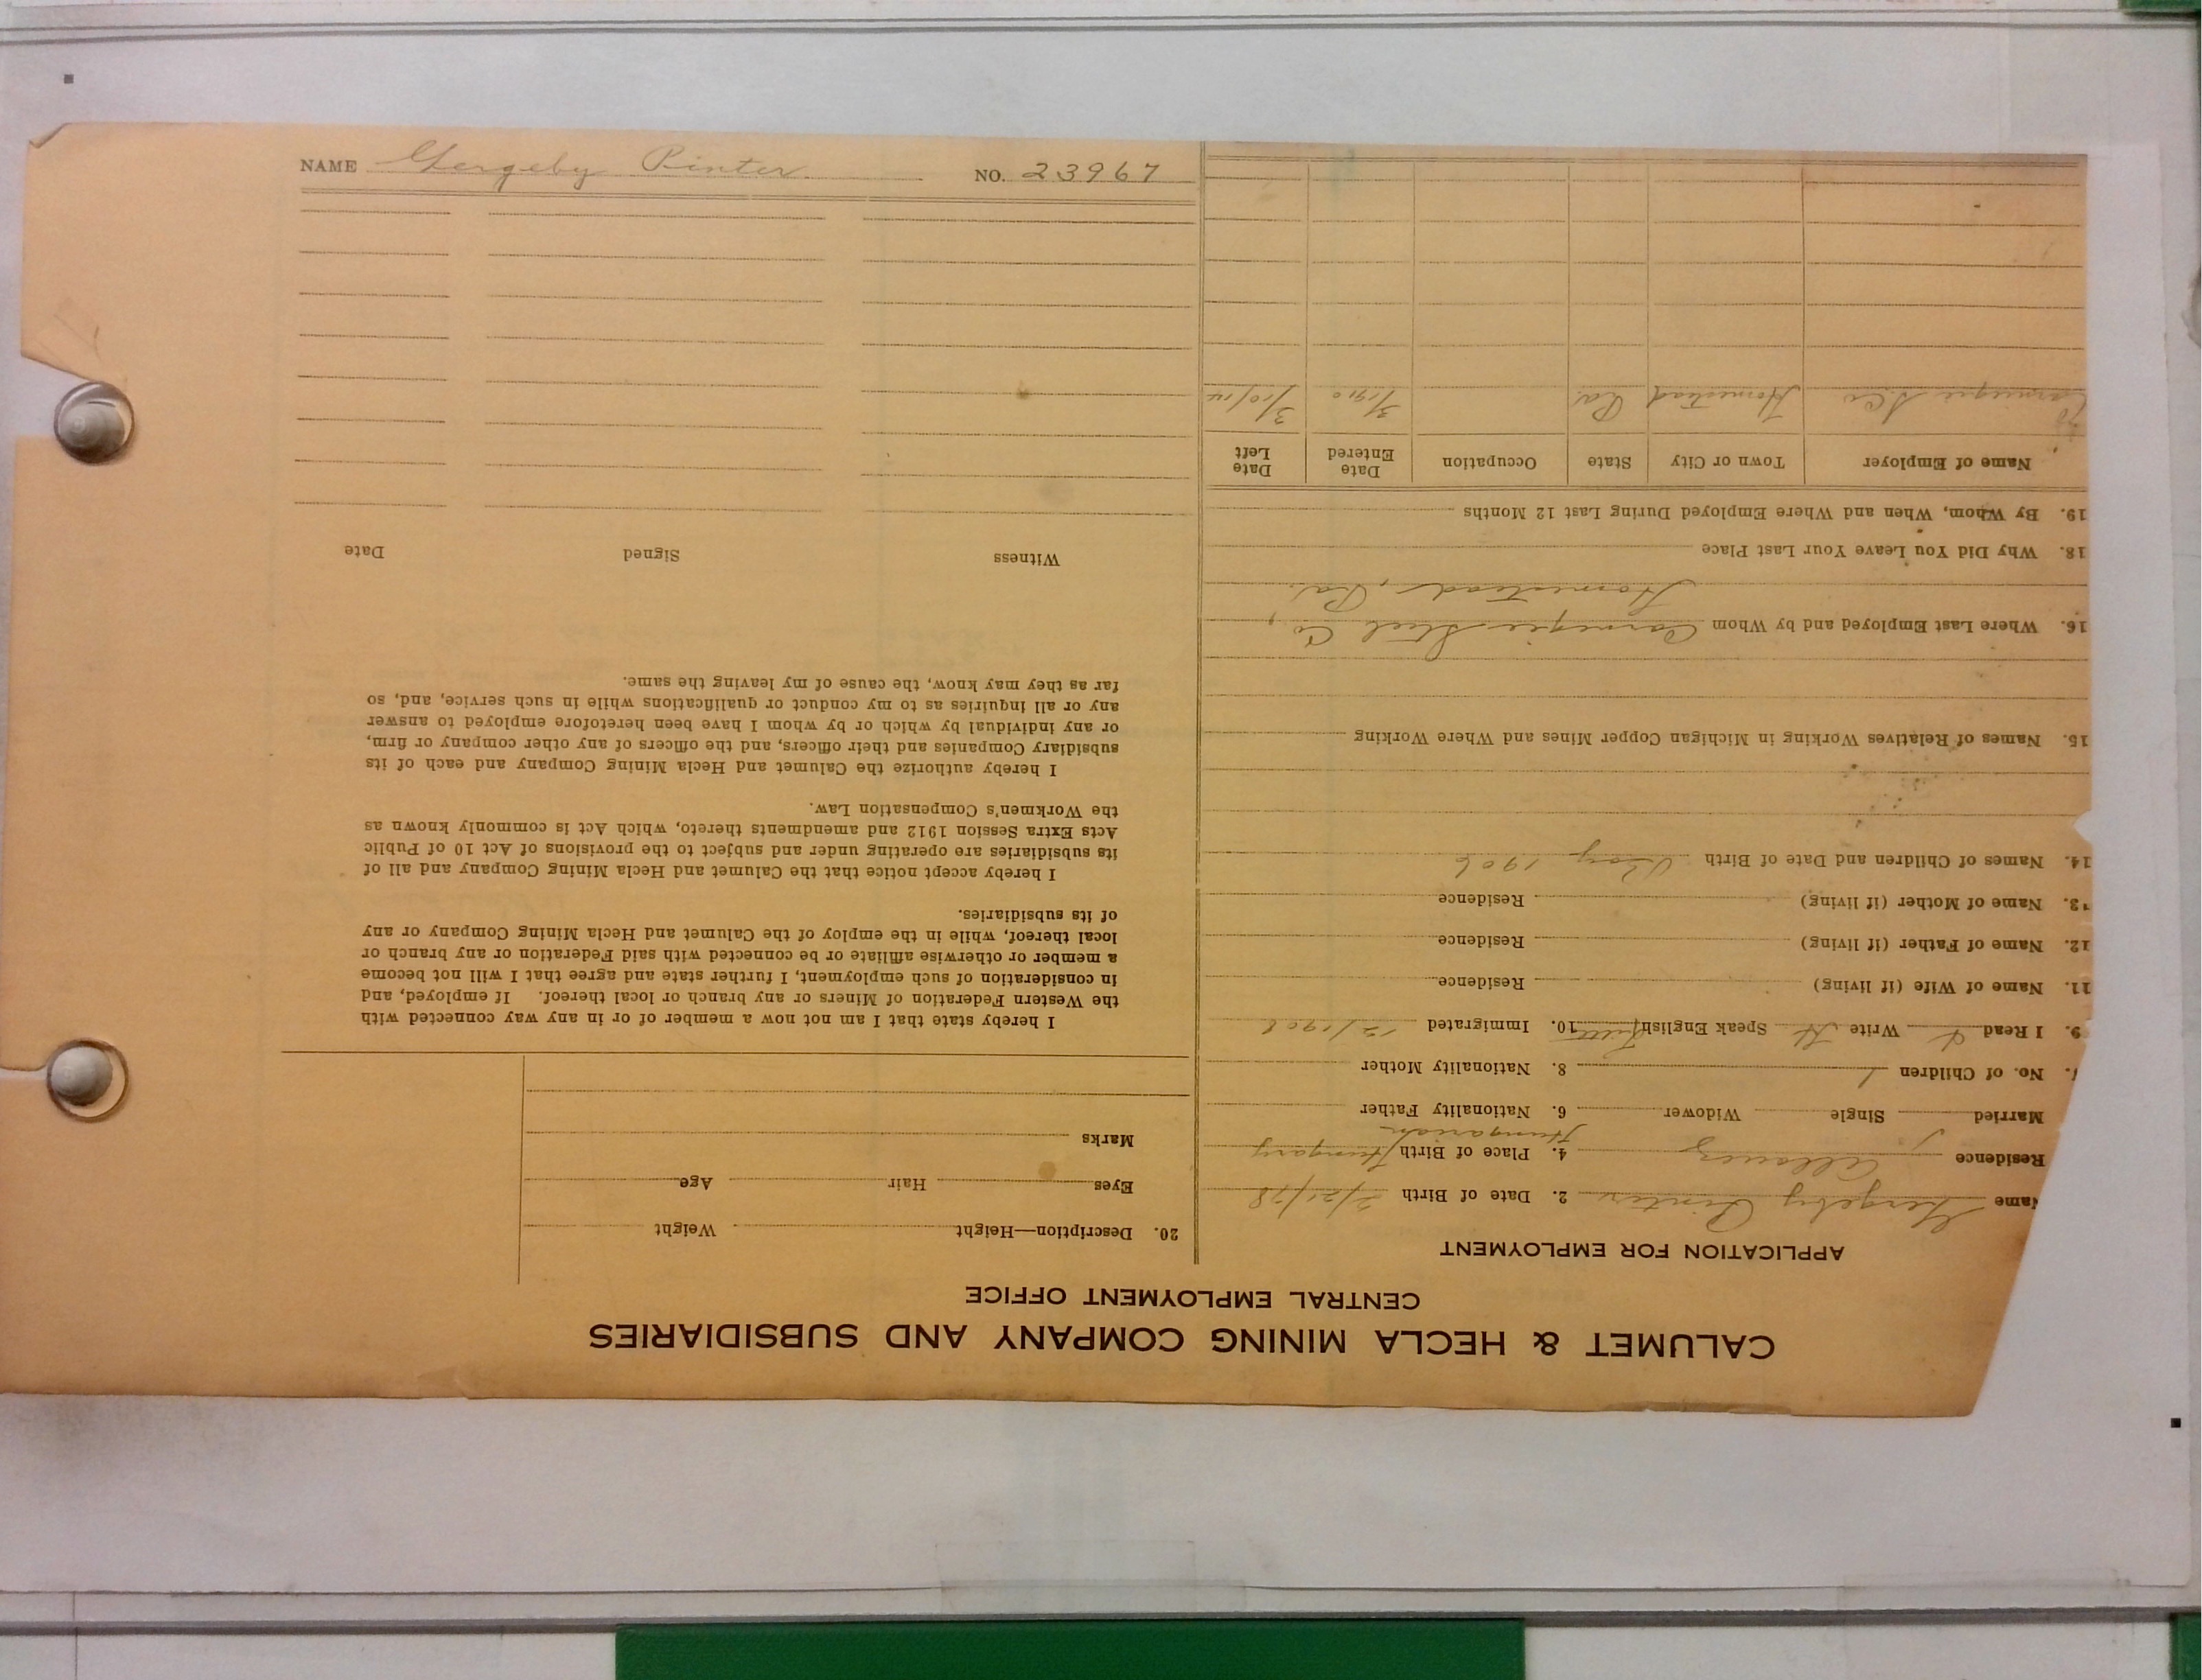 NAME Gergeby Pinter NO. 23967
CALUMET & HECLA MINING COMPANY AND SUBSIDIARIES
CENTRAL EMPLOYMENT OFFICE
APPLICATION FOR EMPLOYMENT
Name Gergeby Pinter 2. Date of Birth /21/78
Residence Allouez 4. Place of Birth Hungary
Hungarian
Married / Single Widower 6. Nationality Father
7. No. of Children 1 8. Nationality Mother
9. I Read Write Speak English Little 10. Immigrated 12/1908
11. Name of Wife (if living) Residence
12. Name of Father (if living) Residence
13. Name of Mother (if living) Residence
14. Names of Children and Date of Birth Boy 1906
15. Names of Relatives Working in Michigan Copper Mines and Where Working
16. Where Last Employed and by Whom Carnegie Steel Co,
Homestead, Pa.
18. Why Did You Leave Your Last Place
19. By Whom, When and Where Employed During Last 12 Months
Name of Employer Town or City State Occupation Date Entered Date Left
Carnegie S. Co Homestead Pa. 3/1910 3/10/14
20. Description—Height Weight
Eyes Hair Age
Marks
I hereby state that I am not now a member of or in any way connected with
the Western Federation of Miners or any branch or local thereof. If employed, and
in consideration of such employment, I further state and agree that I will not become
a member or otherwise affiliate or be connected with said Federation or any branch or
local thereof, while in the employ of the Calumet and Hecla Mining Company or any
of its subsidiaries.
I hereby accept notice that the Calumet and Hecla Mining Company and all of
its subsidiaries are operating under and subject to the provisions of Act 10 of Public
Acts Extra Session 1912 and amendments thereto, which Act is commonly known as
the Workmen's Compensation Law.
I hereby authorize the Calumet and Hecla Mining Company and each of its
subsidiary Companies and their officers, and the officers of any other company or firm,
or any individual by which or by whom I have been heretofore employed to answer
any or all inquiries as to my conduct or qualifications while in such service, and, so
far as they may know, the cause of my leaving the same.
Witness Signed Date